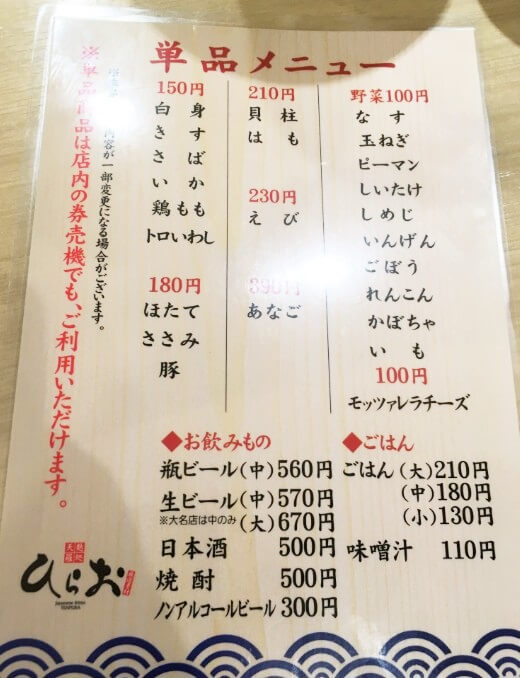 単品メニュー
150円
白身
きす
さば
いか
鶏もも
トロいわし
180円
ほたて
ささみ
豚
210円
貝柱
はも
230円
えび
390円
あなご
野菜100円
なす
玉ねぎ
ピーマン
しいたけ
しめじ
いんげん
ごぼう
れんこん
かぼちゃ
いも
100円
モッツァレラチーズ
内容が一部変更になる場合がございます。
※単品商品は店内の券売機でも、ご利用いただけます。
◆お飲みもの
瓶ビール(中)560円
生ビール(中)570円
※大名店は中のみ(大)670円
日本酒 500円
焼酎 500円
ノンアルコールビール 300円
◆ごはん
ごはん(大)210円
(中)180円
(小)130円
味噌汁 110円
ひらお